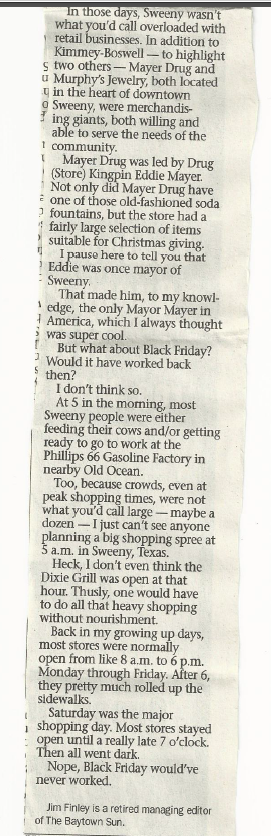 In those days, Sweeny wasn't
what you'd call overloaded with
retail businesses. In addition to
Kimmey-Boswell — to highlight
two others — Mayer Drug and
Murphy's Jewelry, both located
in the heart of downtown
Sweeny, were merchandis-
ing giants, both willing and
able to serve the needs of the
community.
Mayer Drug was led by Drug
(Store) Kingpin Eddie Mayer.
Not only did Mayer Drug have
one of those old-fashioned soda
fountains, but the store had a
fairly large selection of items
suitable for Christmas giving.
I pause here to tell you that
Eddie was once mayor of
Sweeny.
That made him, to my knowl-
edge, the only Mayor Mayer in
America, which I always thought
was super cool.
But what about Black Friday?
Would it have worked back
then?
I don't think so.
At 5 in the morning, most
Sweeny people were either
feeding their cows and/or getting
ready to go to work at the
Phillips 66 Gasoline Factory in
nearby Old Ocean.
Too, because crowds, even at
peak shopping times, were not
what you'd call large — maybe a
dozen — I just can't see anyone
planning a big shopping spree at
5 a.m. in Sweeny, Texas.
Heck, I don't even think the
Dixie Grill was open at that
hour. Thusly, one would have
to do all that heavy shopping
without nourishment.
Back in my growing up days,
most stores were normally
open from like 8 a.m. to 6 p.m.
Monday through Friday. After 6,
they pretty much rolled up the
sidewalks.
Saturday was the major
shopping day. Most stores stayed
open until a really late 7 o'clock.
Then all went dark.
Nope, Black Friday would've
never worked.
Jim Finley is a retired managing editor
of The Baytown Sun.